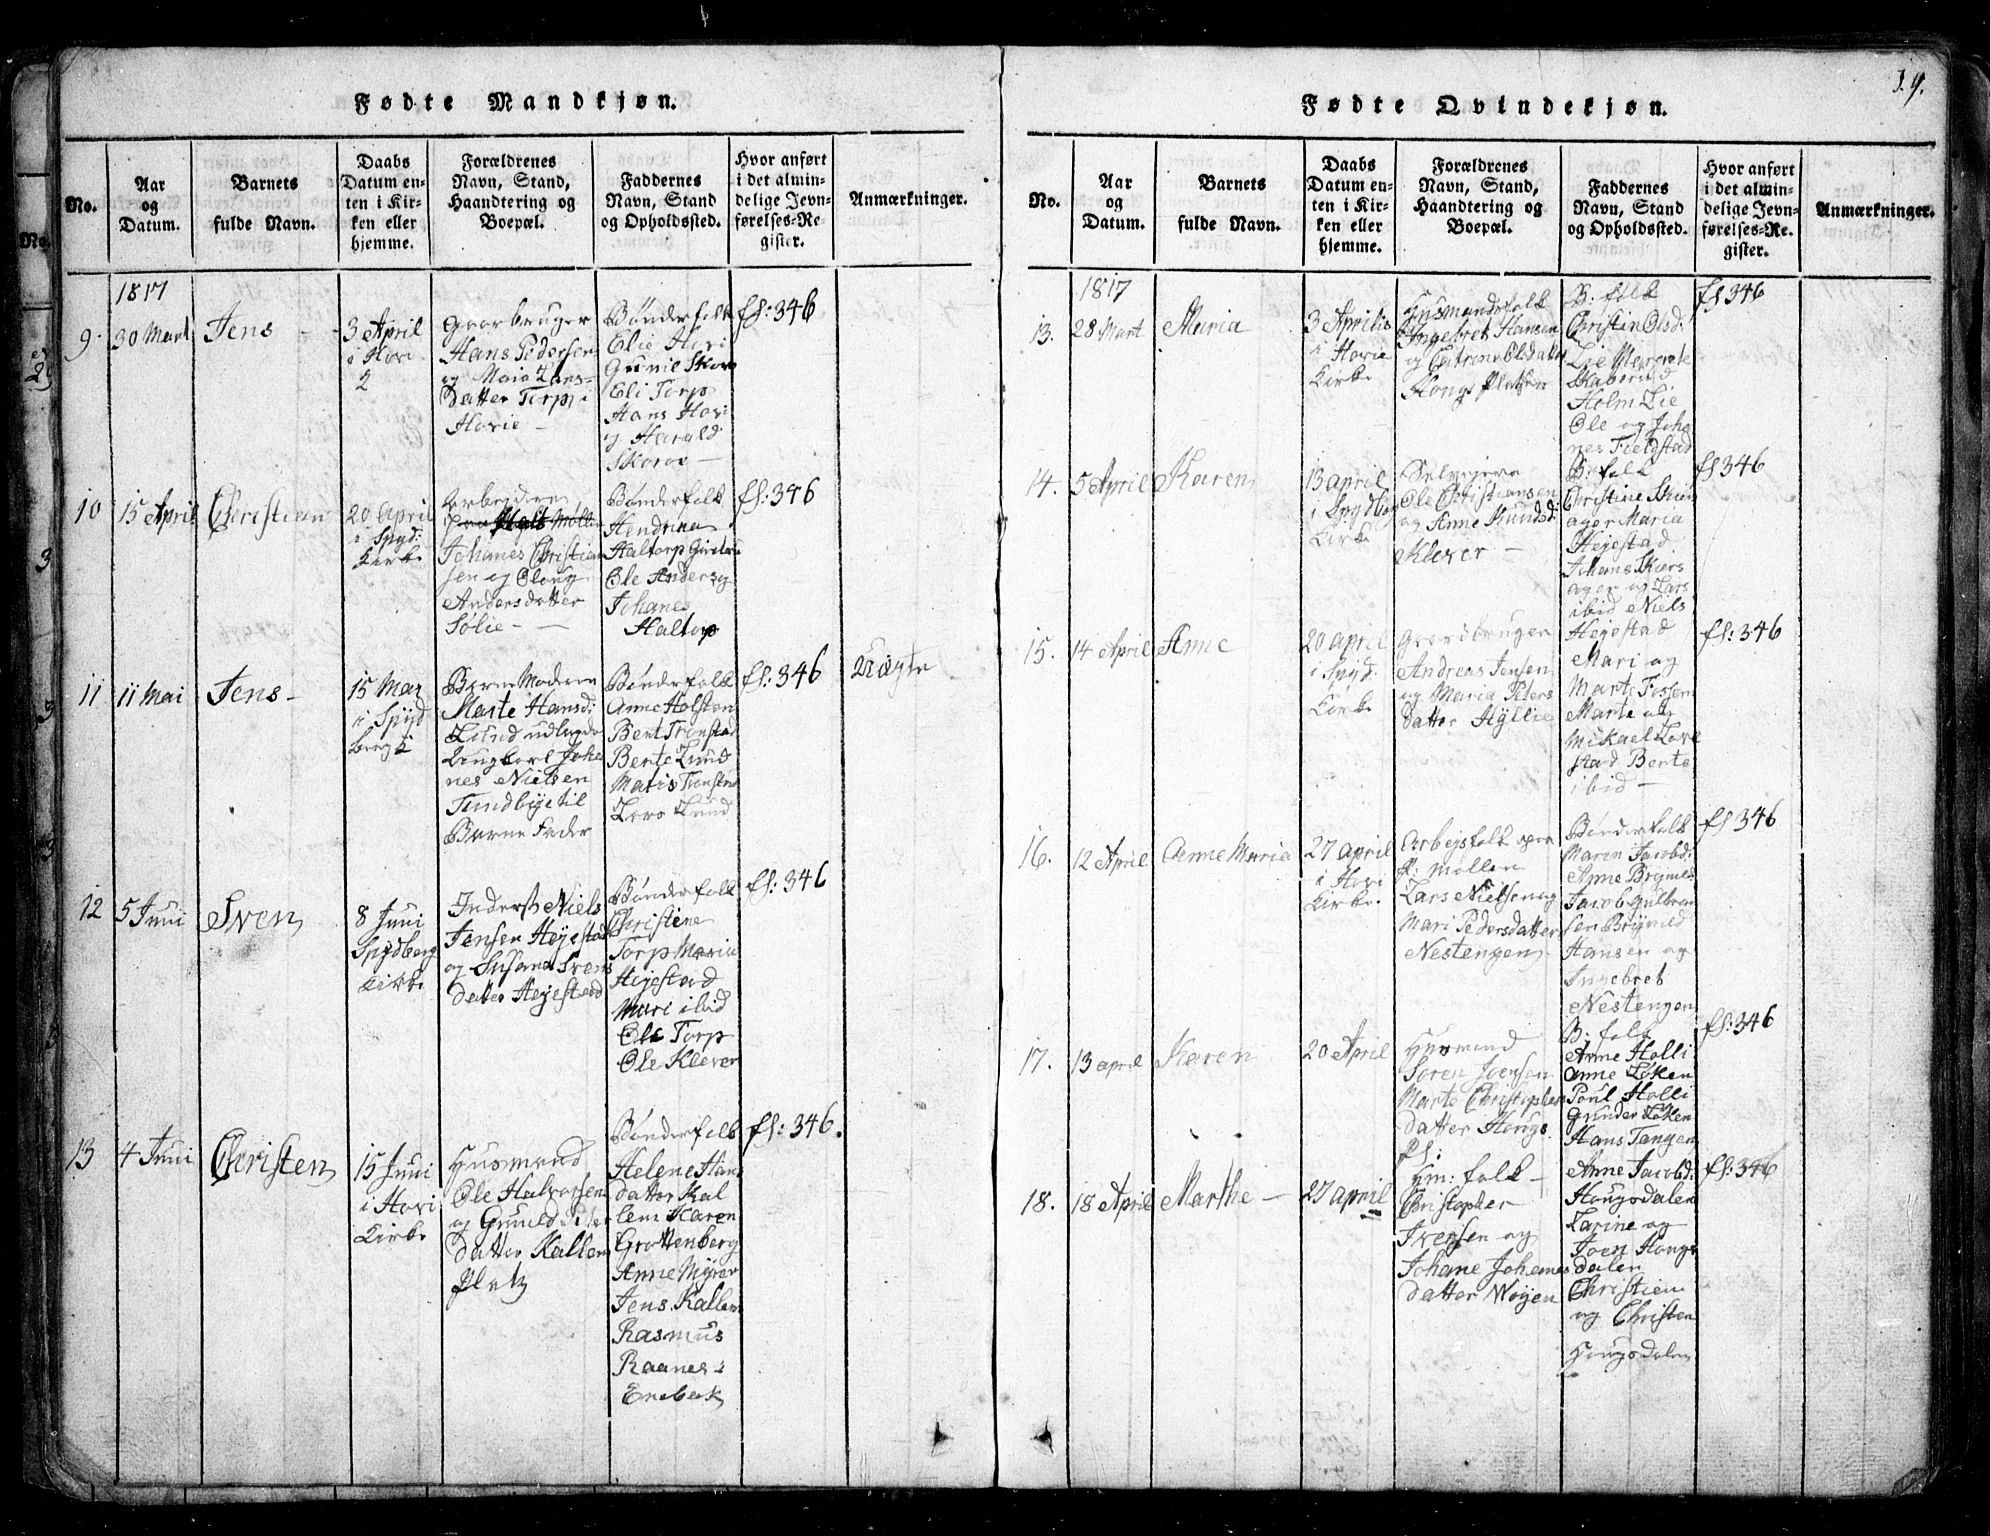 19.
Fødte Mandkjøn.
No.
Aar og Datum.
Barnets fulde Navn.
Daabs Datum enten i Kirken eller hjemme.
Forældrenes Navn, Stand, Haandtering og Boepæl.
Faddernes Navn, Stand og Opholdssted.
Hvor anført i det almindelige Jevnførelses-Register.
Anmærkninger.
1817
9. 30 Mart
Jens
3 April
i Hovi
K
Gaardbruger
Hans Pedersen
og Maia Lars-
datter Torp i
Hovie
Bønderfolk
Elie Hovi
Gunil Skoro
Eli Torp
Hans Hovi
og Harald
Skoroe
fl: 346
10 15 April
Christian
20 April
i Spyd:
Kirke
Arbejdere
Johanes Christian
sen og Oloug
Andersdatter
Sølie
Bønderfolk
Hendrina
Haltorp
Ole Anders og
Johanes
Haltorp
fl: 346
11 11 Mai
Jens
15 Mai
i Spyd
berg K
Barne Moderen
Marte Hansd:
Lund udlagde
Ungkarl Joha
nes Nielsen
Tundbye til
Barne Fader
Bønderfolk
Anne Holsten
Bent Tronstad
Bente Lund
Matis Tronstad
Lars Lund
fl: 346
Uægte
12 5 Juni
Sven
8 Juni
Spydberg
Kirke
Inderst Niels
Jensen Hejestad
og Susana Svens
datter Hejestad
Bønderfolk
Christine
Torp Maria
Hejestad
Mari ibid
Ole Torp
Ole Klever
fl: 346
13 4 Juni
Christen
15 Juni
i Hovi
Kirke
Husmand
Ole Halvorsen
og Gunild Peter
datter Kallem
Plads
Bønderfolk
Helene Hans
datter Kal
lem Karen
Grottenberg
Anne Myrer
Jens Kallem
Rasmus
Raanes
Enebak
fl: 346.
Fødte Qvindekjøn.
No.
Aar og Datum.
Barnets fulde Navn.
Daabs Datum enten i Kirken eller hjemme.
Forældrenes Navn, Stand, Haandtering og Boepæl.
Faddernes Navn, Stand og Opholdssted.
Hvor anført i det almindelige Jevnførelses-Register.
Anmærkninger.
1817
13. 28 Mart
Maria
3 Aprilis
i Hovie
Kirke
Husmandsfolk
Ingebret Hansen
og Catrine Olsdatter
Hougs Pladsen
B: folk
Christin Olsd:
Lie
Holm Lie
Ole og Joha
nes Fieldstad
fl 346
14. 5 April
Karen
13 april
i Spydberg
Kirke
Selvejere
Ole Christiansen
og Anne Knudsd:
Klever
B: folk
Christine Skiærs
ager Maria
Hejestad
Johans Skiers
ager og Lars
ibid Niels
Hejestad
fl 346
15. 14 April
Anne
20 april
i Spyd.
Kirke
Gaardbruger
Andreas Jensen
og Maria Peters
datter Hyllie
Mari og
Marte Fossen
Marte og
Mikael Love
stad Berte
ibid
fl: 346
16. 12 April
Anne Maria
27 april
i Hovi
Kirke
Arbejsfolk
Lars Nielsen og
Mari Pedersdatter
Nestengen
Bønderfolk
Maren Jacobd:
Anne Brynils
Jacob Gulbran
sen Brynild
Hansen og
Ingebret
Nestengen
fl 346
17. 13 april
Karen
20 April
Husmand
Soren Joensen
Marte Christophers
datter Hougs
Pl:
B: folk
Anne Holli
Anne Løken
Poul Holli
Gunder Løken
Hans Tangen
fl: 346
18. 18 April
Marthe
27 april
Hm: folk
Christopher
Iversen og
Johane Johanes
datter Wøyen
Anne Jacobd:
Hougsdalen
Larine og
Joen Hougs
dalen
Christien
og Christen
Hougsdalen
fl: 346